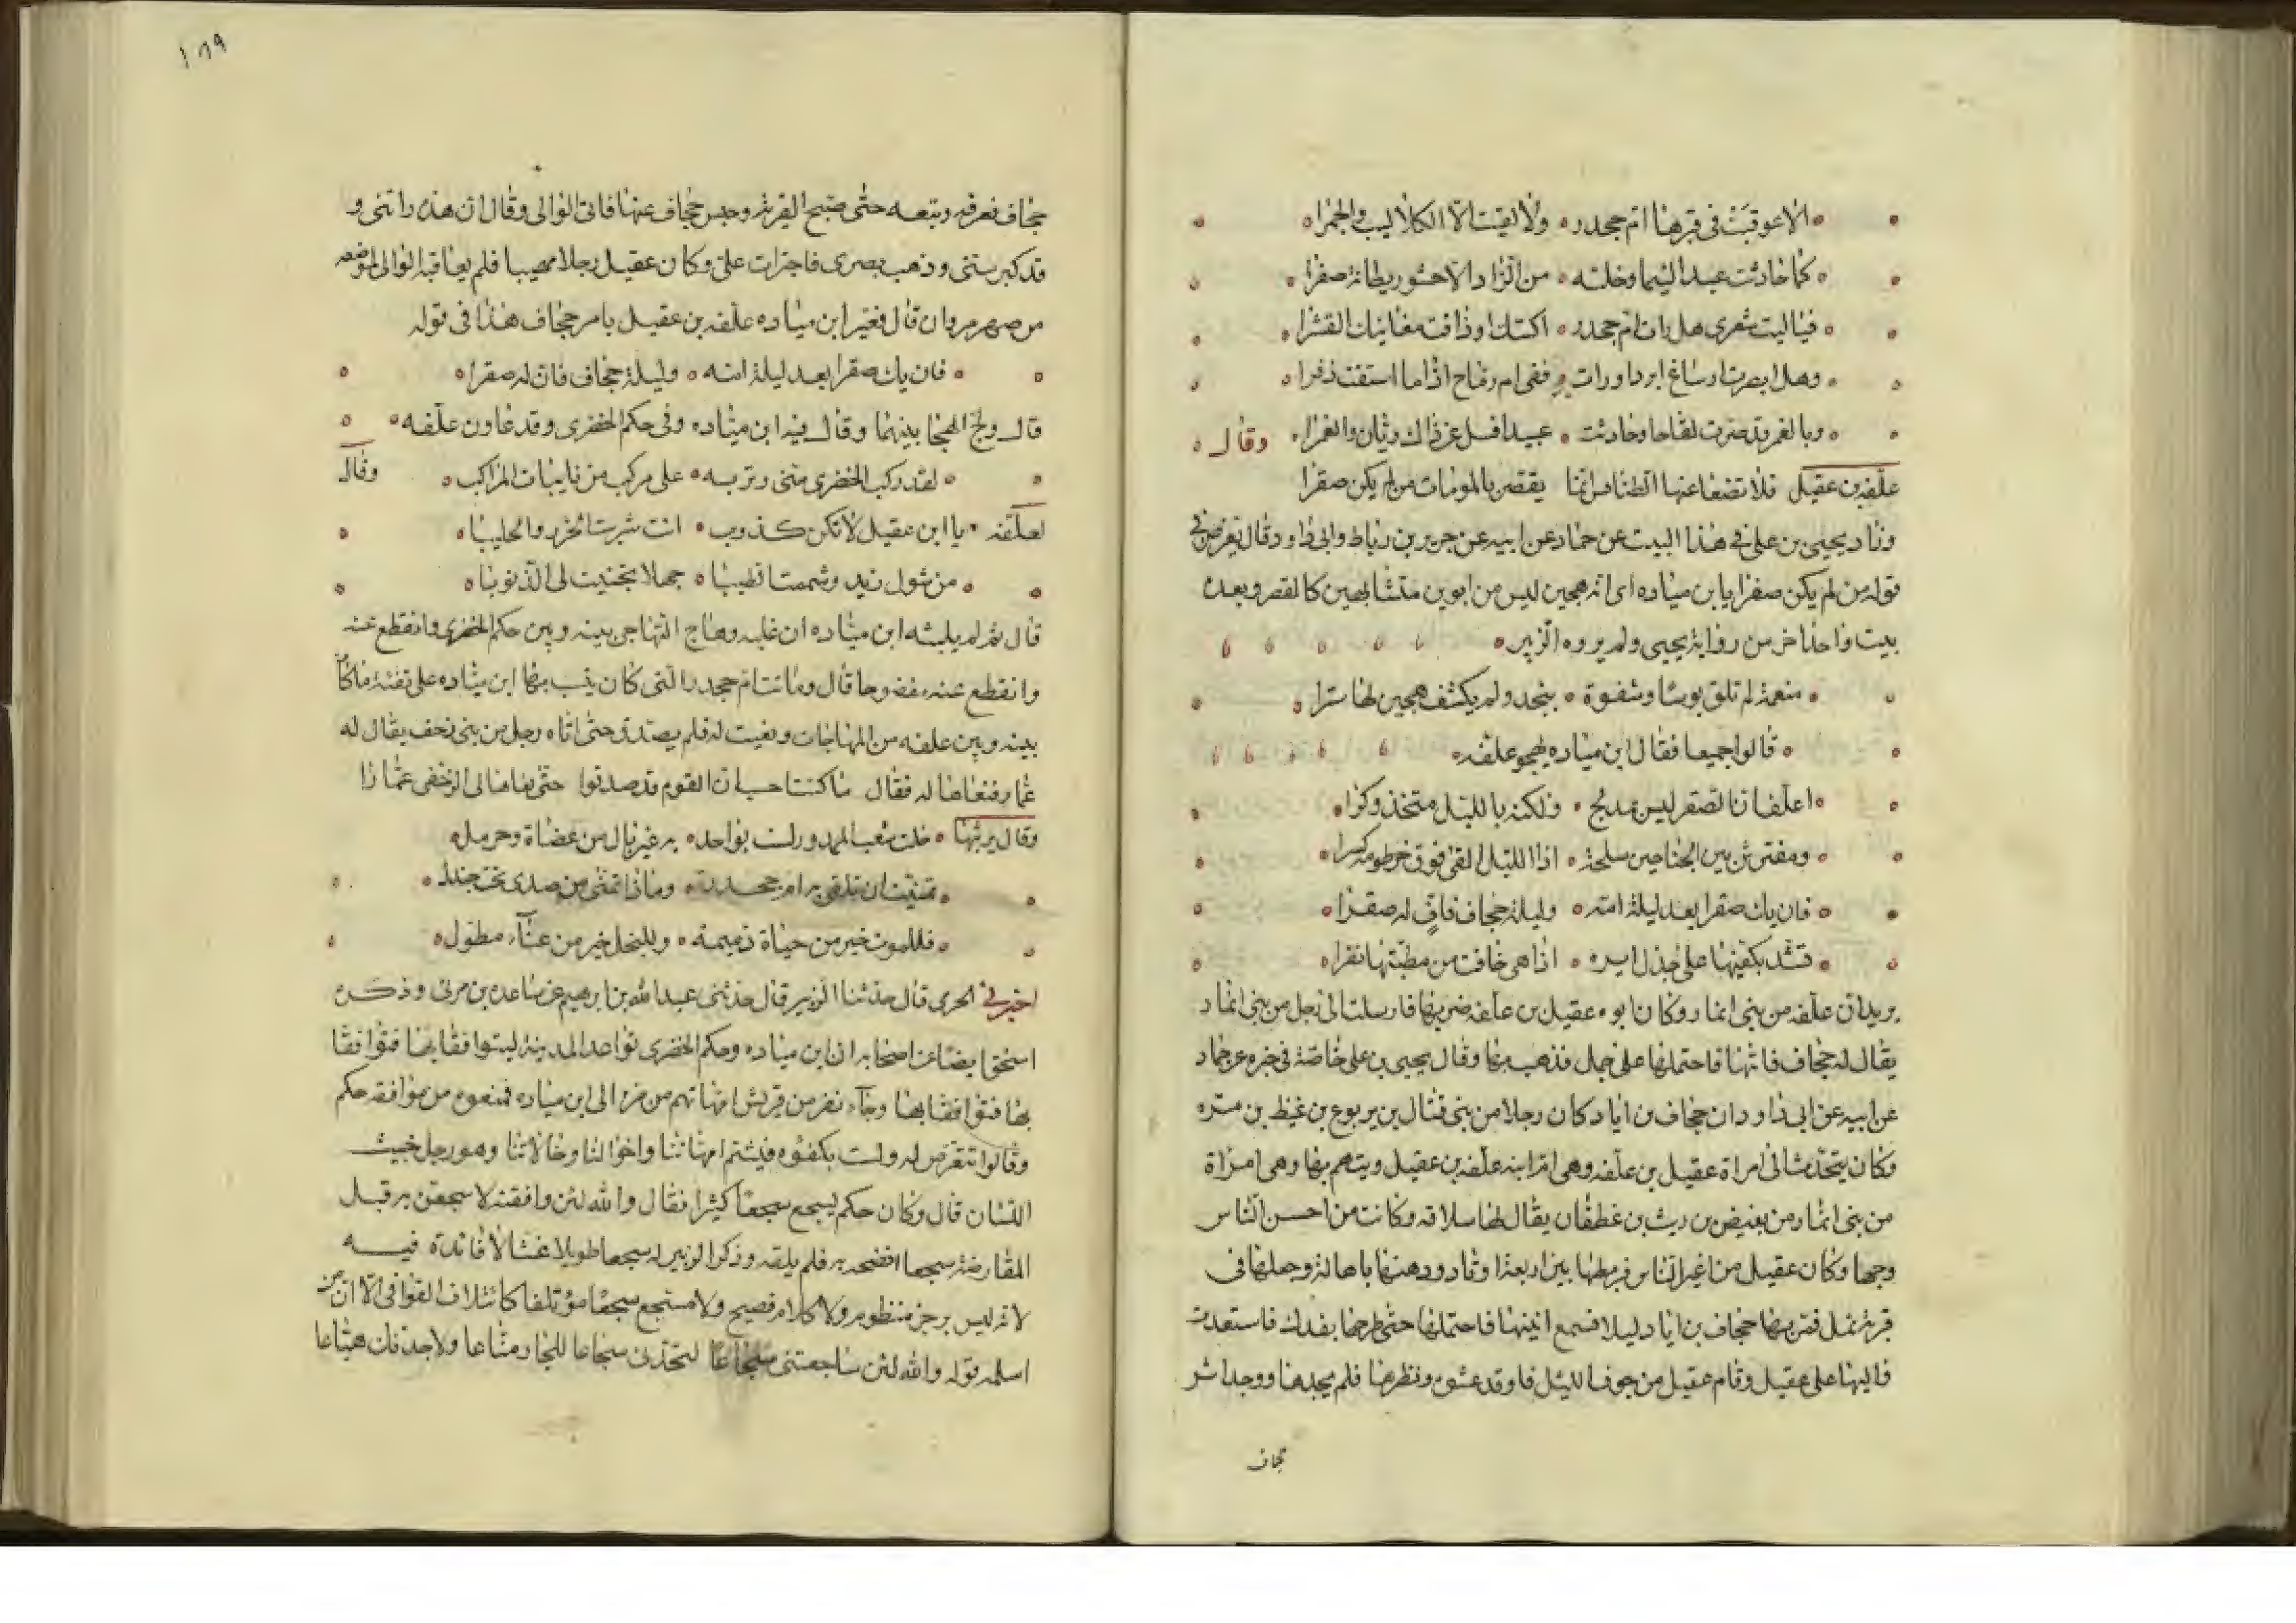 الا عوقبت فى قبرها ام جحدر ولا لقيت الا الكلاليب والجمرا
كما حادثت عبدا لئيما وخلته من الزاد الا حشو ريطاته صفرا
فياليت شعرى هل رات ام جحدر اكشك او ذاقت مغابنك القشرا
وهل ابصرت ارساغ ابرد اورات قفى ام رماح اذا ما استقت ذفرا
وبالغمر قد صرت لقاحا وحادثت عبيدا فسل عن ذاك ريان والغمرا وقال
علفه بن عقيل فلا تضعا عنها الطنافس انما يقصر بالمومات من لم يكن صقرا
وزاد يحيى بن على فى هذا البيت عن حماد عن ابيه عن جرير بن رباط وابى داود قال يعرض فى
قوله من لم يكن صقرا يا ابن مياده اى انه هجين ليس من ابوين متشابهين كالصقر وبعده
بيت واحد اخر من رواية يحيى ولم يروه الزبير
منعمة لم تلق بوسا وشقوة بنجد ولم يكشف هجين لها سترا
قالوا جميعا فقال ابن مياده يهجو علفه
اعلف ان الصقر ليس بمدلج ولكنه بالليل متخذ وكرا
ومفترش بين الجناحين سلحه اذا الليل القى فوق خرطومه كسرا
فان يك صقرا بعد ليلة امه وليلة جحاف فاف له صقرا
تشد بكفيها على جذل ايره اذا هى خافت من مطيتها نفرا
يريد ان علفه من بنى انمار وكان ابوه عقيل بن علفه ضربها فارسلت الى رجل من بنى انمار
يقال له جحاف فاتاها فاحتملها على جمل فذهب بها وقال يحيى بن على خاصة فى خبره عن حماد
عن ابيه عن ابى داود ان جحاف بن اياد كان رجلا من بنى قتال بن يربوع بن غيظ بن مره
وكان يتحدث الى امراة عقيل بن علفه وهى ام ابنه علفه بن عقيل ويتهم بها وهى امراة
من بنى انمار من بغيض بن ريث بن غطفان يقال لها سلافه وكانت من احسن الناس
وجها وكان عقيل من اغير الناس فربطها بين اربعة اوتاد ودهنها باهالة وجعلها فى
قرية نمل فمر بها جحاف بن اياد ليلا فسمع انينها فاحتملها حتى طرحها بفدك فاستعدت
واليها على عقيل وقام عقيل من جوف الليل فاوقد عشوه ونظرها فلم يجدها ووجد اثر
جحاف
١٨٩
جحاف فعرفه وتبعه حتى صبح القريه وحبس جحاف عنها فاتى الوالى وقال ان هذه راتنى و
قد كبر سنى وذهب بصرى فاجترات على وكان عقيل رجلا مهيبا فلم يعاقبه الوالى لموضعه
من صهر مروان قال فعير ابن مياده علفه بن عقيل بامر جحاف هذا فى قوله
فان يك صقرا بعد ليلة امه وليلة جحاف فاف له صقرا
قال ولج الهجا بينهما وقال فيه ابن مياده وفى حكم الخضرى وقد عاون علفه
لقد ركب الخضرى منى وتربه على مركب من نايبات المراكب وقال
لعلفه يا ابن عقيل لا تكن كذوبا انت شربت الخزر والحليبا
من شول زيد وشممت الطيبا جهلا تجنيت لى الذنوبا
قال ثم لم يلبثه ابن مياده ان غلبه وهاج التهاجى بينه وبين حكم الخضرى وانقطع عنه
وانقطع عنه مفضوحا قال وماتت ام جحدر التى كان ينسب بها ابن مياده على تفئة ما كان
بينه وبين علفه من المهاجات ونعيت له فلم يصدق حتى اتاه رجل من بنى زحف يقال له
عمار فنعاها له فقال ما كنت احسب ان القوم قد صدقوا حتى نعاها لى الزحفى عمار
وقال يرثيها خلت شعب الممدور لست بواجد به غير بال من عضاة وحرمل
تمنيت ان تلقى به ام جحدر وماذا تمنى من صدى تحت جندل
فللموت خير من حياة ذميمه وللبخل خير من عناء مطول
اخبرنى الحرمى قال حدثنا الزبير قال حدثنى عبدالله بن ابراهيم عن ساعدة بن مرئى وذكره
اسحق ايضا عن اصحابه ان ابن مياده وحكم الخضرى تواعدا المدينة ليتواقفا بها فتواقفا
بها فتواقفا بها وجاء نفر من قريش امهاتهم من مره الى ابن مياده فمنعوه من مواقفه حكم
وقالوا تتعرض له ولست بكفوه فيشتم امهاتنا واخوالنا وخالاتنا وهو رجل خبيث
اللسان قال وكان حكم يسجع سجعا كثيرا فقال والله لئن واقفته لاسجعن به قبل
المقارضة سجعا افضحه به فلم يلقه وذكر الزبير له سجعا طويلا غثا لا فائدة فيه
لانه ليس برجز منظوم ولا كلام فصيح ولا مسجع سجعا مؤتلفا كائتلاف القوافى الا ان من
اسلمه قوله والله لئن ساجعتنى سجاعا لتجدنى سجاعا للجار مناعا ولاجدنك هياعا